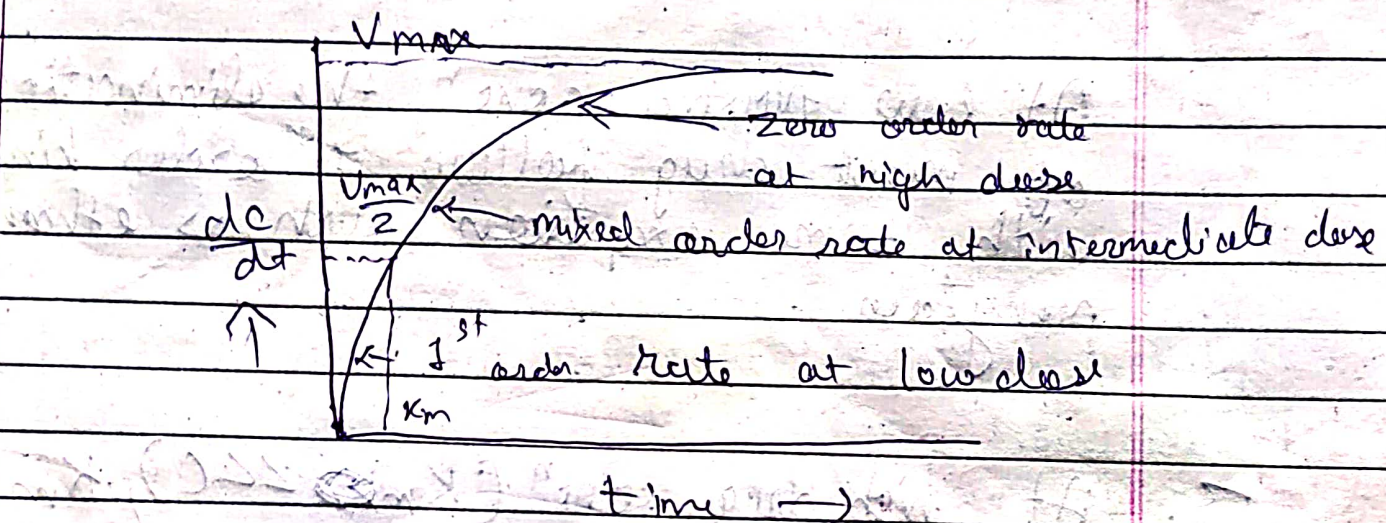 Vmax
zero order rate
at high dose
Vmax
2
mixed order rate at intermediate dose
dc
dt
1st order rate at low dose
Km
time